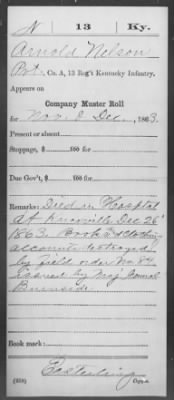 N 13 Ky.
Arnold Nelson
Pvt., Co. A, 13 Reg't Kentucky Infantry.
Appears on
Company Muster Roll
for Nov. & Dec., 1863.
Present or absent
Stoppage, $ 100 for
Due Gov't, $ 100 for
Remarks: Died in Hospital
at Knoxville Dec 26"
1863. Book and Clothing
account destroyed
by field order No 84
issued by Maj General
Burnside.
Book mark:
Easterling
(358) Copyist.